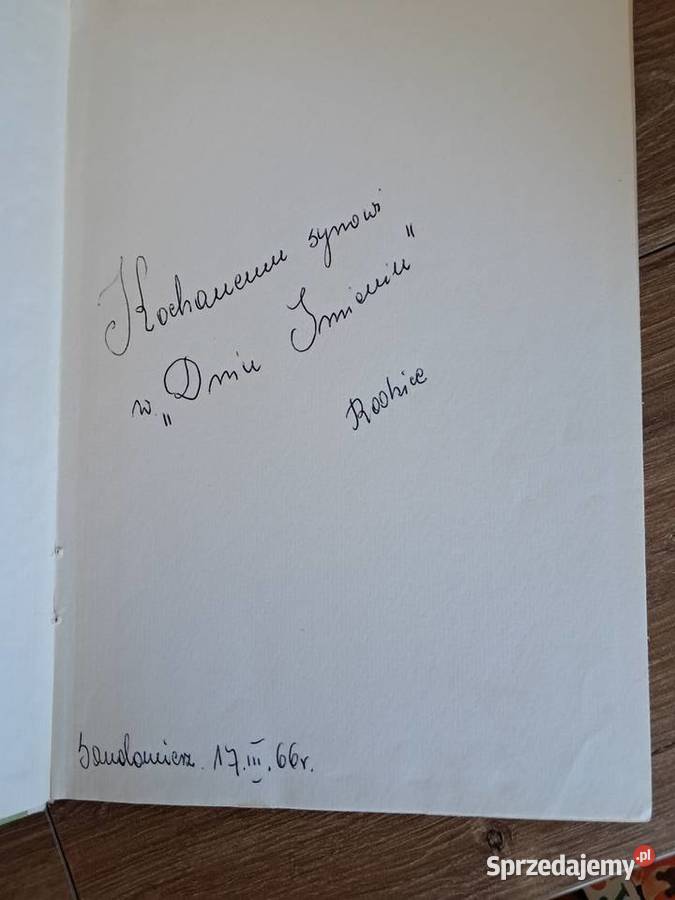 Kochanemu synowi
w „Dniu Imienin"
Rodzice
Sandomierz. 17.III.66r.
Sprzedajemy.pl